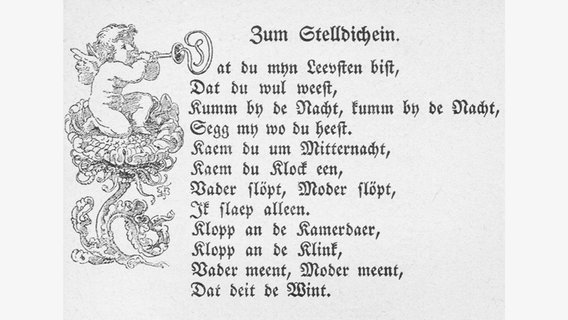 Zum Stelldichein.
Dat du myn Leevsten bist,
Dat du wul weest,
Kumm by de Nacht, kumm by de Nacht,
Segg my wo du heest.
Kaem du um Mitternacht,
Kaem du Klock een,
Vader slöpt, Moder slöpt,
Ik slaep alleen.
Klopp an de Kamerdaer,
Klopp an de Klink,
Vader meent, Moder meent,
Dat deit de Wint.